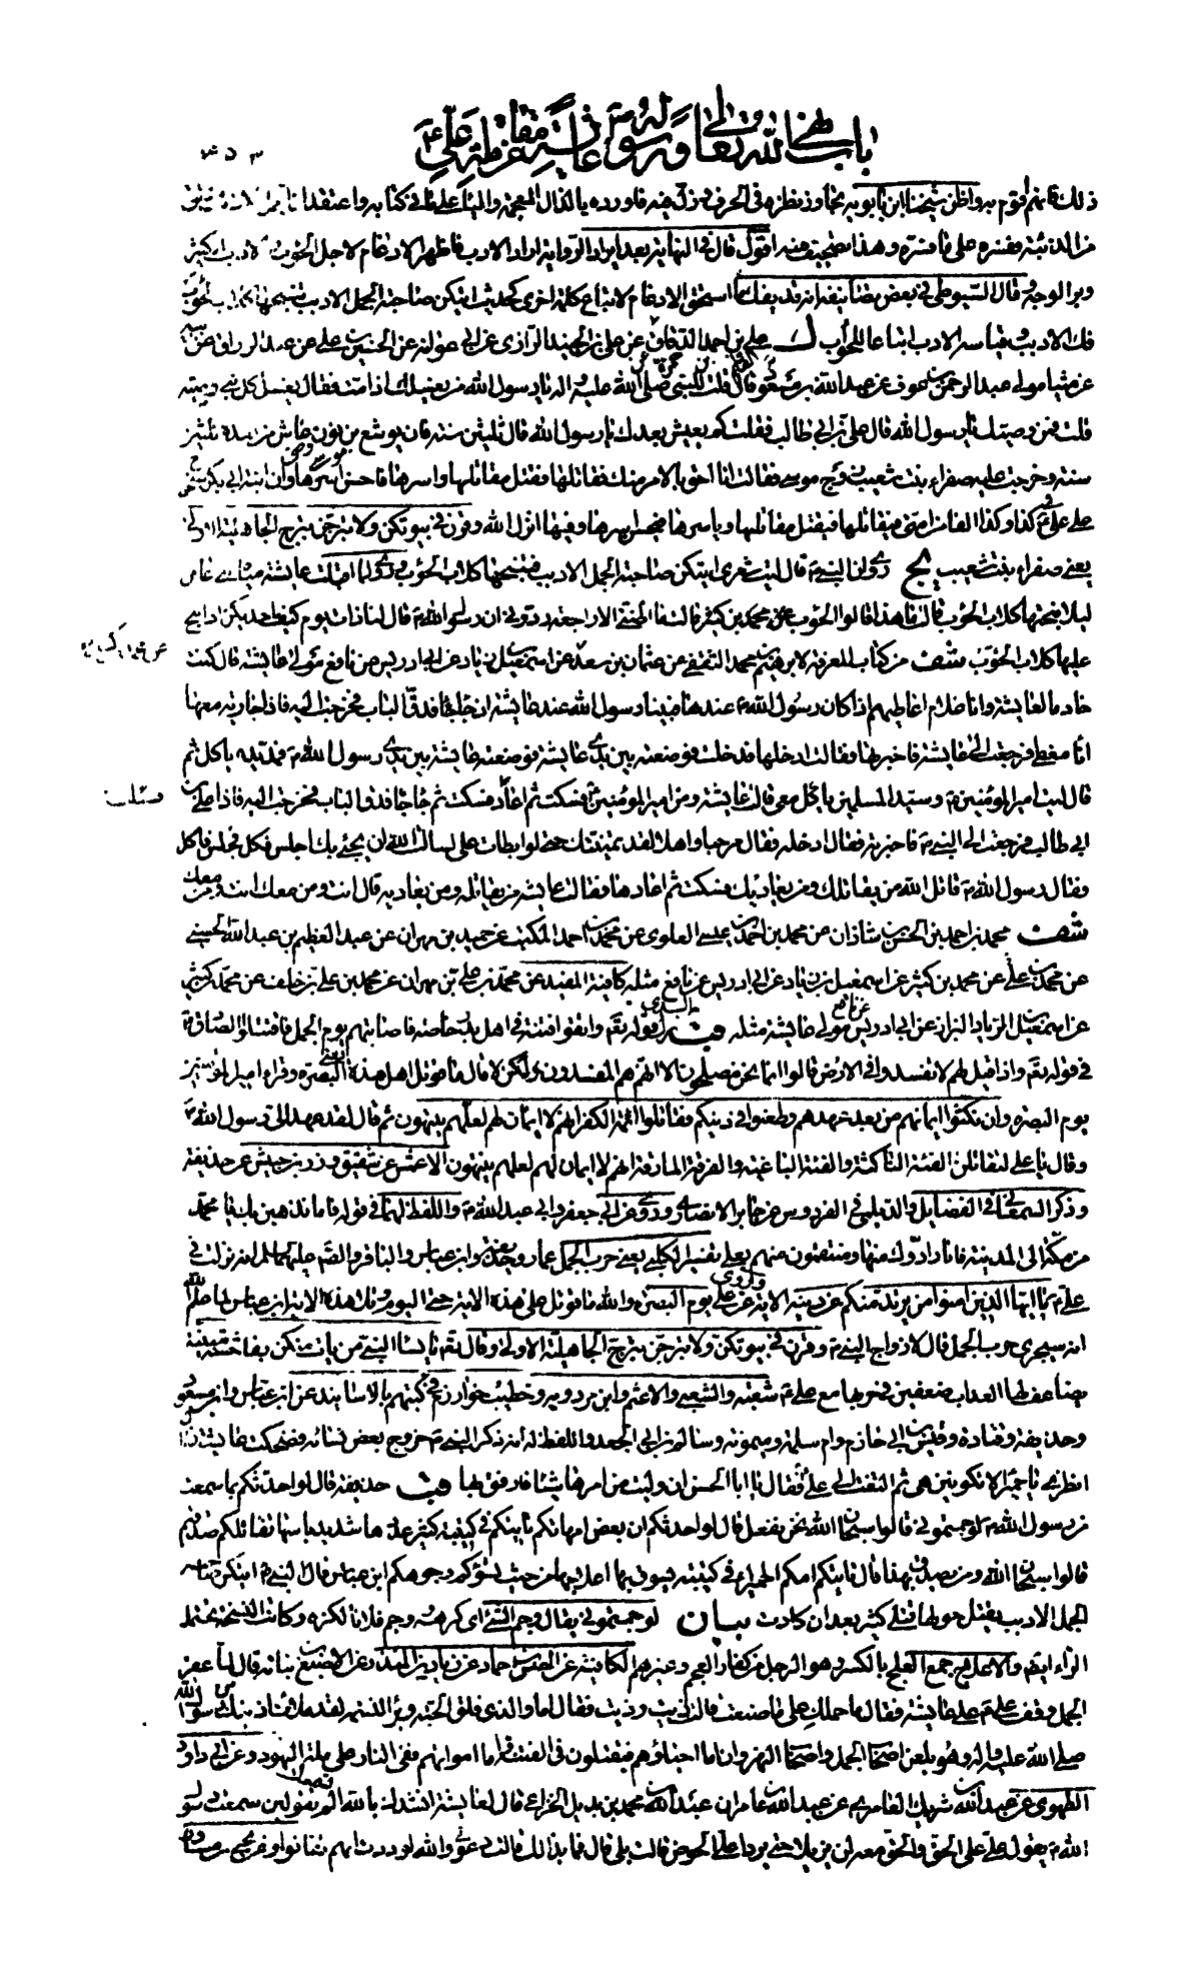 باب نهي الله تعالى ورسوله ص عائشة عن مقاتلة علي ع
٤٥٣
ذلك فانهم اقوم به واظن شيخنا ابن بابويه تجاوز نظره في الحرف فاورده بالذال المعجمة والياء على ما في كتابه واعتقدا
من الذئبة وفسره على ما فسره وهذا تصحيف منه اقول قال في النهاية بعد ايراد الرواية اراد الادب فاظهر الادغام لاجل الحوئب والادب الكثير
وبر الوجه وقال السيوطي في بعض تصانيفه انه قد يفك ما استحق الادغام لاتباع كلمة اخرى كحديث ايتكن صاحبة الجمل الادبب تنبحها كلاب الحوئب
فك الادبب وقياسه الادب اتباعا للحوأب ك علي بن احمد الدقاق عن حمزة بن القاسم عن علي بن الجنيد الرازي عن ابي عوانة عن الحسين بن علي عن عبد الرزاق عن ابيه
عن مينا مولى عبد الرحمن بن عوف عن عبد الله بن مسعود قال قلت للنبي صلى الله عليه واله يا رسول الله من يغسلك اذا مت فقال يغسل كل نبي وصيه
قلت فمن وصيك يا رسول الله قال علي بن ابي طالب فقلت كم يعيش بعدك يا رسول الله قال ثلثين سنة فان يوشع بن نون عاش من بعده ثلثين
سنة وخرجت عليه صفراء بنت شعيب زوج موسى فقالت انا احق بالامر منك فقاتلها فقتل مقاتلها واسرها فاحسن اسرها وان ابنة ابي بكر ستخرج
على علي في كذا وكذا الفا من امتي فيقاتلها فيقتل مقاتليها وياسرها فيحسن اسرها وفيها انزل الله وقرن في بيوتكن ولا تبرجن تبرج الجاهلية الاولى
يعني صفراء بنت شعيب يج روي ان النبي ص قال ليت شعري ايتكن صاحبة الجمل الادبب فتنبحها كلاب الحوئب وروي لما اقبلت عايشة مياه بني عامر
ليلا نبحتها كلاب الحوئب قالت ما هذا قالوا الحوئب قالت ما اظنني الا راجعة ردوني ان رسول الله ص قال لنا ذات يوم كيف باحديكن اذا نبح
عن محمد بن كثير
عليها كلاب الحوئب شف من كتاب المعرفة لابرهيم بن محمد الثقفي عن عثمان بن سعيد عن اسمعيل بن زياد عن ابي ادريس عن نافع مولى عايشة قال كنت
خادما لعايشة وانا غلام اعاطيهم اذا كان رسول الله ص عندها فبينا رسول الله عند عايشة اذ جاء جاء فدق الباب فخرجت اليه فاذا جارية معها
اناء مغطى فرجعت الى عايشة فاخبرتها فقالت ادخلها فدخلت فوضعته بين يدي عايشة فوضعته عايشة بين يدي رسول الله ص فمد يده ياكل ثم
قال ليت امير المؤمنين ع وسيد المسلمين ياكل معي قالت عايشة ومن امير المؤمنين فسكت ثم اعاد فسكت ثم جاء جاء فدق الباب فخرجت اليه فاذا علي بن
ابي طالب فرجعت الى النبي ص فاخبرته فقال ادخله فقال مرحبا واهلا لقد تمنيتك حتى لو ابطات علي لسالت الله ان يجئ بك اجلس فكل فجلس فاكل
فقال رسول الله ص قاتل الله من يقاتلك ومن يعاديك فسكت ثم اعادها فقالت عايشة من يقاتله ومن يعاديه قال انت ومن معك انت ومن معك
شف محمد بن احمد بن الحسن بن شاذان عن محمد بن احمد بن عيسى العلوي عن محمد بن احمد المكتب عن حميد بن مهران عن عبد العظيم بن عبد الله الحسني
عن محمد بن علي عن محمد بن كثير عن اسمعيل بن زياد عن ابي ادريس عن نافع مثله كافية المفيد عن محمد بن علي بن مهران عن محمد بن علي بن خلف عن محمد بن كثير
عن اسمعيل بن زياد البزاز عن ابي ادريس عن نافع مولى عايشة مثله قب السدي قوله تعالى واتقوا فتنة في اهل بدر خاصة فاصابتهم يوم الجمل فاقتتلوا الصادق ع
في قوله تعالى واذا قيل لهم لا تفسدوا في الارض قالوا انما نحن مصلحون الا انهم هم المفسدون ولكن لا قال ما قوتل اهل هذه الاية البصرة وقرا امير المؤمنين
يوم البصرة وان نكثوا ايمانهم من بعد عهدهم وطعنوا في دينكم فقاتلوا ائمة الكفر انهم لا ايمان لهم لعلهم ينتهون ثم قال لقد عهد الى رسول الله ص
وقال يا علي لتقاتلن الفئة الناكثة والفئة الباغية والفرقة المارقة انهم لا ايمان لهم لعلهم ينتهون الاعمش عن شقيق وزر بن حبيش عن حذيفة
وذكر السمعاني في الفضايل والديلمي في الفردوس عن جابر الانصاري وروي عن ابي جعفر وابي عبد الله ع واللفظ لهما في قوله فاما نذهبن بك يا محمد
من مكة الى المدينة فانا رادوك منها ومنتقمون منهم بعلي تفسير الكلبي يعني حرب الجمل عمار وحذيفة وابن عباس والباقر والصادق عليهما السلام انه نزلت في
علي ع يا ايها الذين امنوا من يرتد منكم عن دينه الاية وروي عن علي يوم البصرة والله ما قوتل على هذه الاية حتى اليوم وتلا هذه الاية ابن عباس لما علم الله
انه سيجري حرب الجمل قال لازواج النبي ص وقرن في بيوتكن ولا تبرجن تبرج الجاهلية الاولى وقال تعالى يا نساء النبي من يات منكن بفاحشة مبينة
يضاعف لها العذاب ضعفين في حربها مع علي ع شعبة والشعبي والاعثم وابن مردويه وخطيب خوارزم في كتبهم بالاسانيد عن ابن عباس وابن مسعود
وحذيفة وقتادة وقيس بن ابي حازم وام سلمة وميمونة وسالم بن ابي الجعد واللفظ له انه ذكر النبي ص خروج بعض نسائه فضحكت عايشة فقال
انظري يا حميراء لا تكونين هي ثم التفت الى علي فقال يا ابا الحسن ان وليت من امرها شيئا فارفق بها قب حذيفة قال لو احدثكم بما سمعت
من رسول الله ص لوجمتموني قالوا سبحان الله نحن نفعل قال لو احدثكم ان بعض امهاتكم تاتيكم في كتيبة كثير عددها شديد باسها تقاتلكم صدقتم
قالوا سبحان الله ومن يصدق بهذا قال تاتيكم امكم الحميراء في كتيبة يسوق بها اعلاجها من حيث يسوء وجوهكم ابن عباس قال النبي ص ايتكن صاحبة
الجمل الادبب يقتل حولها قتلى كثير بعد ان كادت بيان لوجمتموني يقال وجم الشئ اي كرهه ووجم فلانا لكزه وكانت النسخة تحتمل
الراء ايضا والاعلاج جمع العلج بالكسر وهو الرجل من كفار العجم وغيرهم الكافية عن الحسن بن حماد عن زياد بن المنذر عن الاصبغ بن نباتة قال لما عقر
الجمل وقف علي ع على عايشة فقال ما حملك على ما صنعت قالت ذيت وذيت فقال اما والذي فلق الحبة وبرأ النسمة لقد ملات اذنيك من رسول الله
صلى الله عليه واله وهو يلعن اصحاب الجمل واصحاب النهروان اما احياؤهم فيقتلون في الفتنة واما امواتهم ففي النار على ملة اليهود وعن ابي داود
الطهوي عن عبد الله بن شريك العامري عن عبد الله بن عامر ان عبد الله بن محمد بن بديل الخزاعي قال لعايشة انشدك بالله الم تقولين سمعت رسول
الله ص يقول علي على الحق والحق معه لن يزيلا حتى يردا علي الحوض قالت بلى قال فما بدا لك قالت دعوني والله لوددت انهم تفانوا